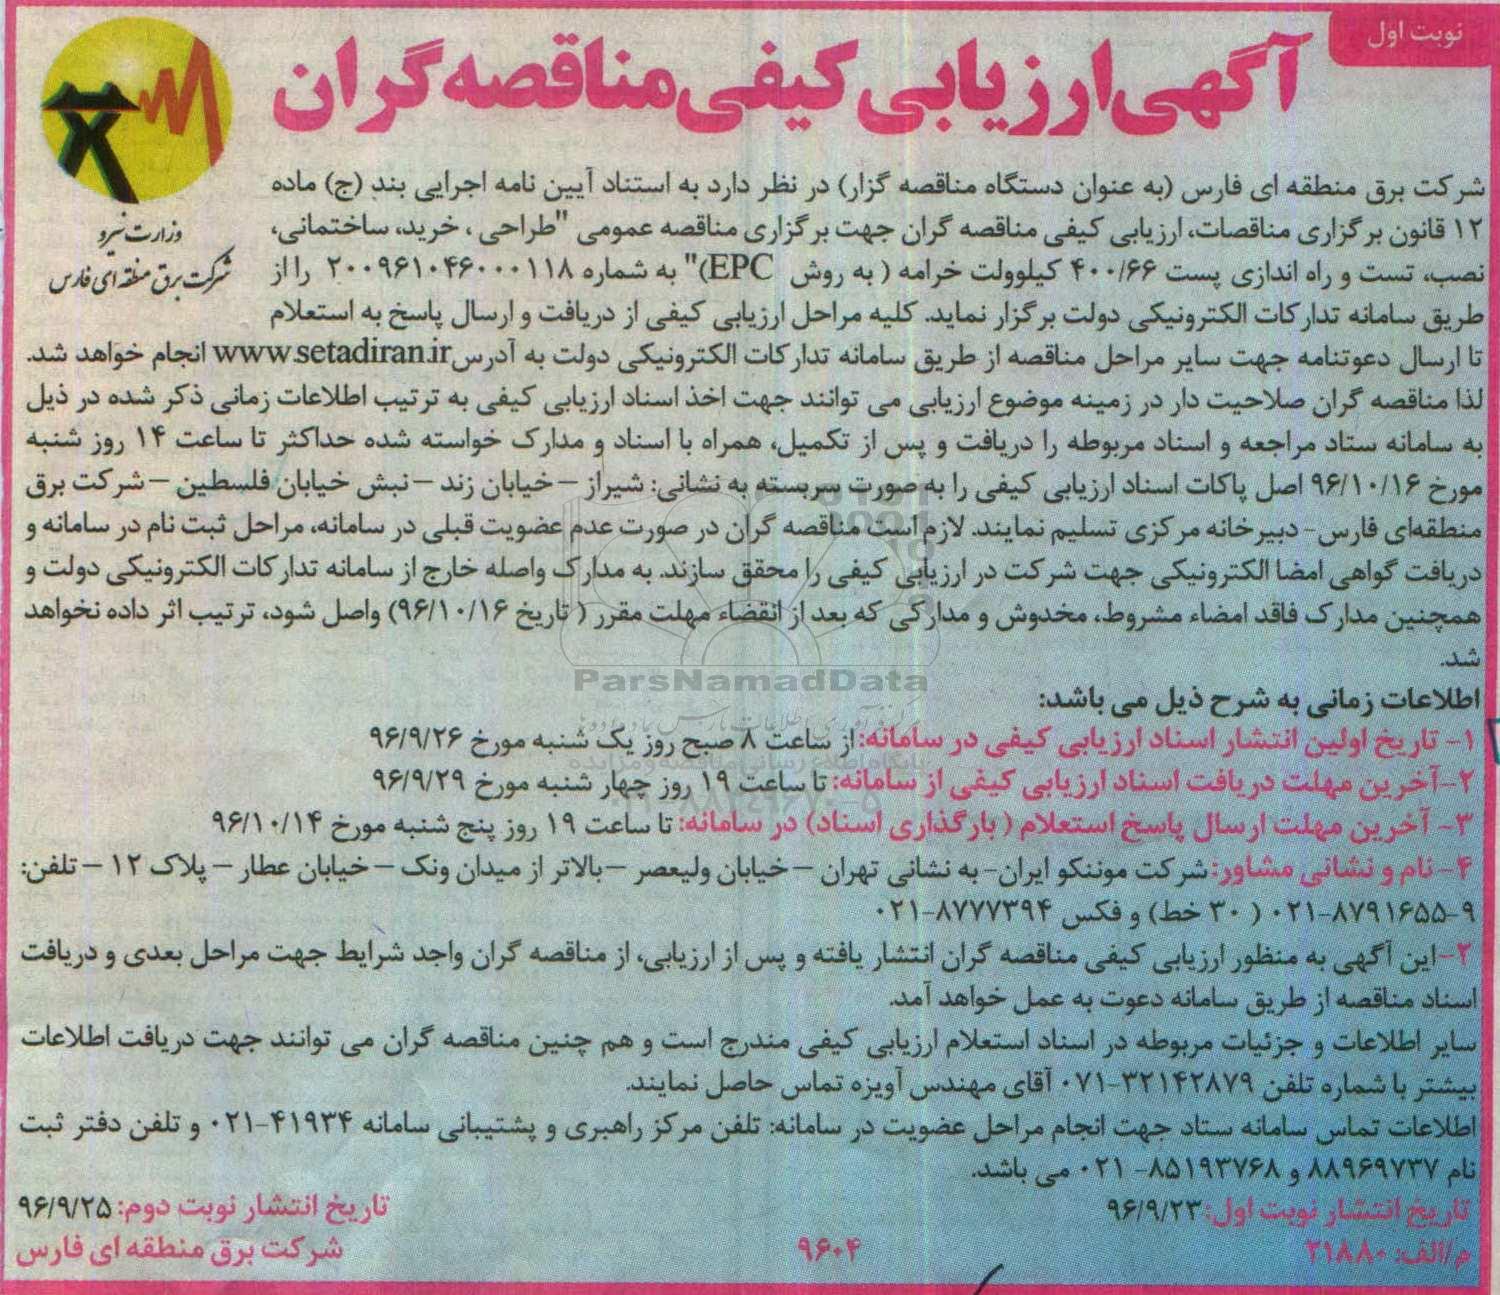 نوبت اول
آگهی ارزیابی کیفی مناقصه گران
وزارت نیرو
شرکت برق منطقه ای فارس
شرکت برق منطقه ای فارس (به عنوان دستگاه مناقصه گزار) در نظر دارد به استناد آیین نامه اجرایی بند (ج) ماده
۱۲ قانون برگزاری مناقصات، ارزیابی کیفی مناقصه گران جهت برگزاری مناقصه عمومی "طراحی ، خرید، ساختمانی،
نصب، تست و راه اندازی پست ۴۰۰/۶۶ کیلوولت خرامه ( به روش EPC)" به شماره ۲۰۰۹۶۱۰۴۶۰۰۰۱۱۸ را از
طریق سامانه تدارکات الکترونیکی دولت برگزار نماید. کلیه مراحل ارزیابی کیفی از دریافت و ارسال پاسخ به استعلام
تا ارسال دعوتنامه جهت سایر مراحل مناقصه از طریق سامانه تدارکات الکترونیکی دولت به آدرس www.setadiran.ir انجام خواهد شد.
لذا مناقصه گران صلاحیت دار در زمینه موضوع ارزیابی می توانند جهت اخذ اسناد ارزیابی کیفی به ترتیب اطلاعات زمانی ذکر شده در ذیل
به سامانه ستاد مراجعه و اسناد مربوطه را دریافت و پس از تکمیل، همراه با اسناد و مدارک خواسته شده حداکثر تا ساعت ۱۴ روز شنبه
مورخ ۹۶/۱۰/۱۶ اصل پاکات اسناد ارزیابی کیفی را به صورت سربسته به نشانی: شیراز – خیابان زند – نبش خیابان فلسطین – شرکت برق
منطقه‌ای فارس- دبیرخانه مرکزی تسلیم نمایند. لازم است مناقصه گران در صورت عدم عضویت قبلی در سامانه، مراحل ثبت نام در سامانه و
دریافت گواهی امضا الکترونیکی جهت شرکت در ارزیابی کیفی را محقق سازند. به مدارک واصله خارج از سامانه تدارکات الکترونیکی دولت و
همچنین مدارک فاقد امضاء مشروط، مخدوش و مدارکی که بعد از انقضاء مهلت مقرر ( تاریخ ۹۶/۱۰/۱۶) واصل شود، ترتیب اثر داده نخواهد
شد.
ParsNamadData
اطلاعات زمانی به شرح ذیل می باشد:
۱- تاریخ اولین انتشار اسناد ارزیابی کیفی در سامانه: از ساعت ۸ صبح روز یک شنبه مورخ ۹۶/۹/۲۶
۲-آخرین مهلت دریافت اسناد ارزیابی کیفی از سامانه: تا ساعت ۱۹ روز چهار شنبه مورخ ۹۶/۹/۲۹
۳- آخرین مهلت ارسال پاسخ استعلام ( بارگذاری اسناد) در سامانه: تا ساعت ۱۹ روز پنج شنبه مورخ ۹۶/۱۰/۱۴
۴- نام و نشانی مشاور: شرکت موننکو ایران- به نشانی تهران – خیابان ولیعصر – بالاتر از میدان ونک – خیابان عطار – پلاک ۱۲ – تلفن:
۰۲۱-۸۷۹۱۶۵۵-۹ ( ۳۰ خط) و فکس ۰۲۱-۸۷۷۷۳۹۴
۲-این آگهی به منظور ارزیابی کیفی مناقصه گران انتشار یافته و پس از ارزیابی، از مناقصه گران واجد شرایط جهت مراحل بعدی و دریافت
اسناد مناقصه از طریق سامانه دعوت به عمل خواهد آمد.
سایر اطلاعات و جزئیات مربوطه در اسناد استعلام ارزیابی کیفی مندرج است و هم چنین مناقصه گران می توانند جهت دریافت اطلاعات
بیشتر با شماره تلفن ۰۷۱-۳۲۱۴۲۸۷۹ آقای مهندس آویزه تماس حاصل نمایند.
اطلاعات تماس سامانه ستاد جهت انجام مراحل عضویت در سامانه: تلفن مرکز راهبری و پشتیبانی سامانه ۰۲۱-۴۱۹۳۴ و تلفن دفتر ثبت
نام ۸۸۹۶۹۷۳۷ و ۸۵۱۹۳۷۶۸- ۰۲۱ می باشد.
تاریخ انتشار نوبت اول: ۹۶/۹/۲۳
تاریخ انتشار نوبت دوم: ۹۶/۹/۲۵
م/الف: ۲۱۸۸۰
۹۶۰۴
شرکت برق منطقه ای فارس